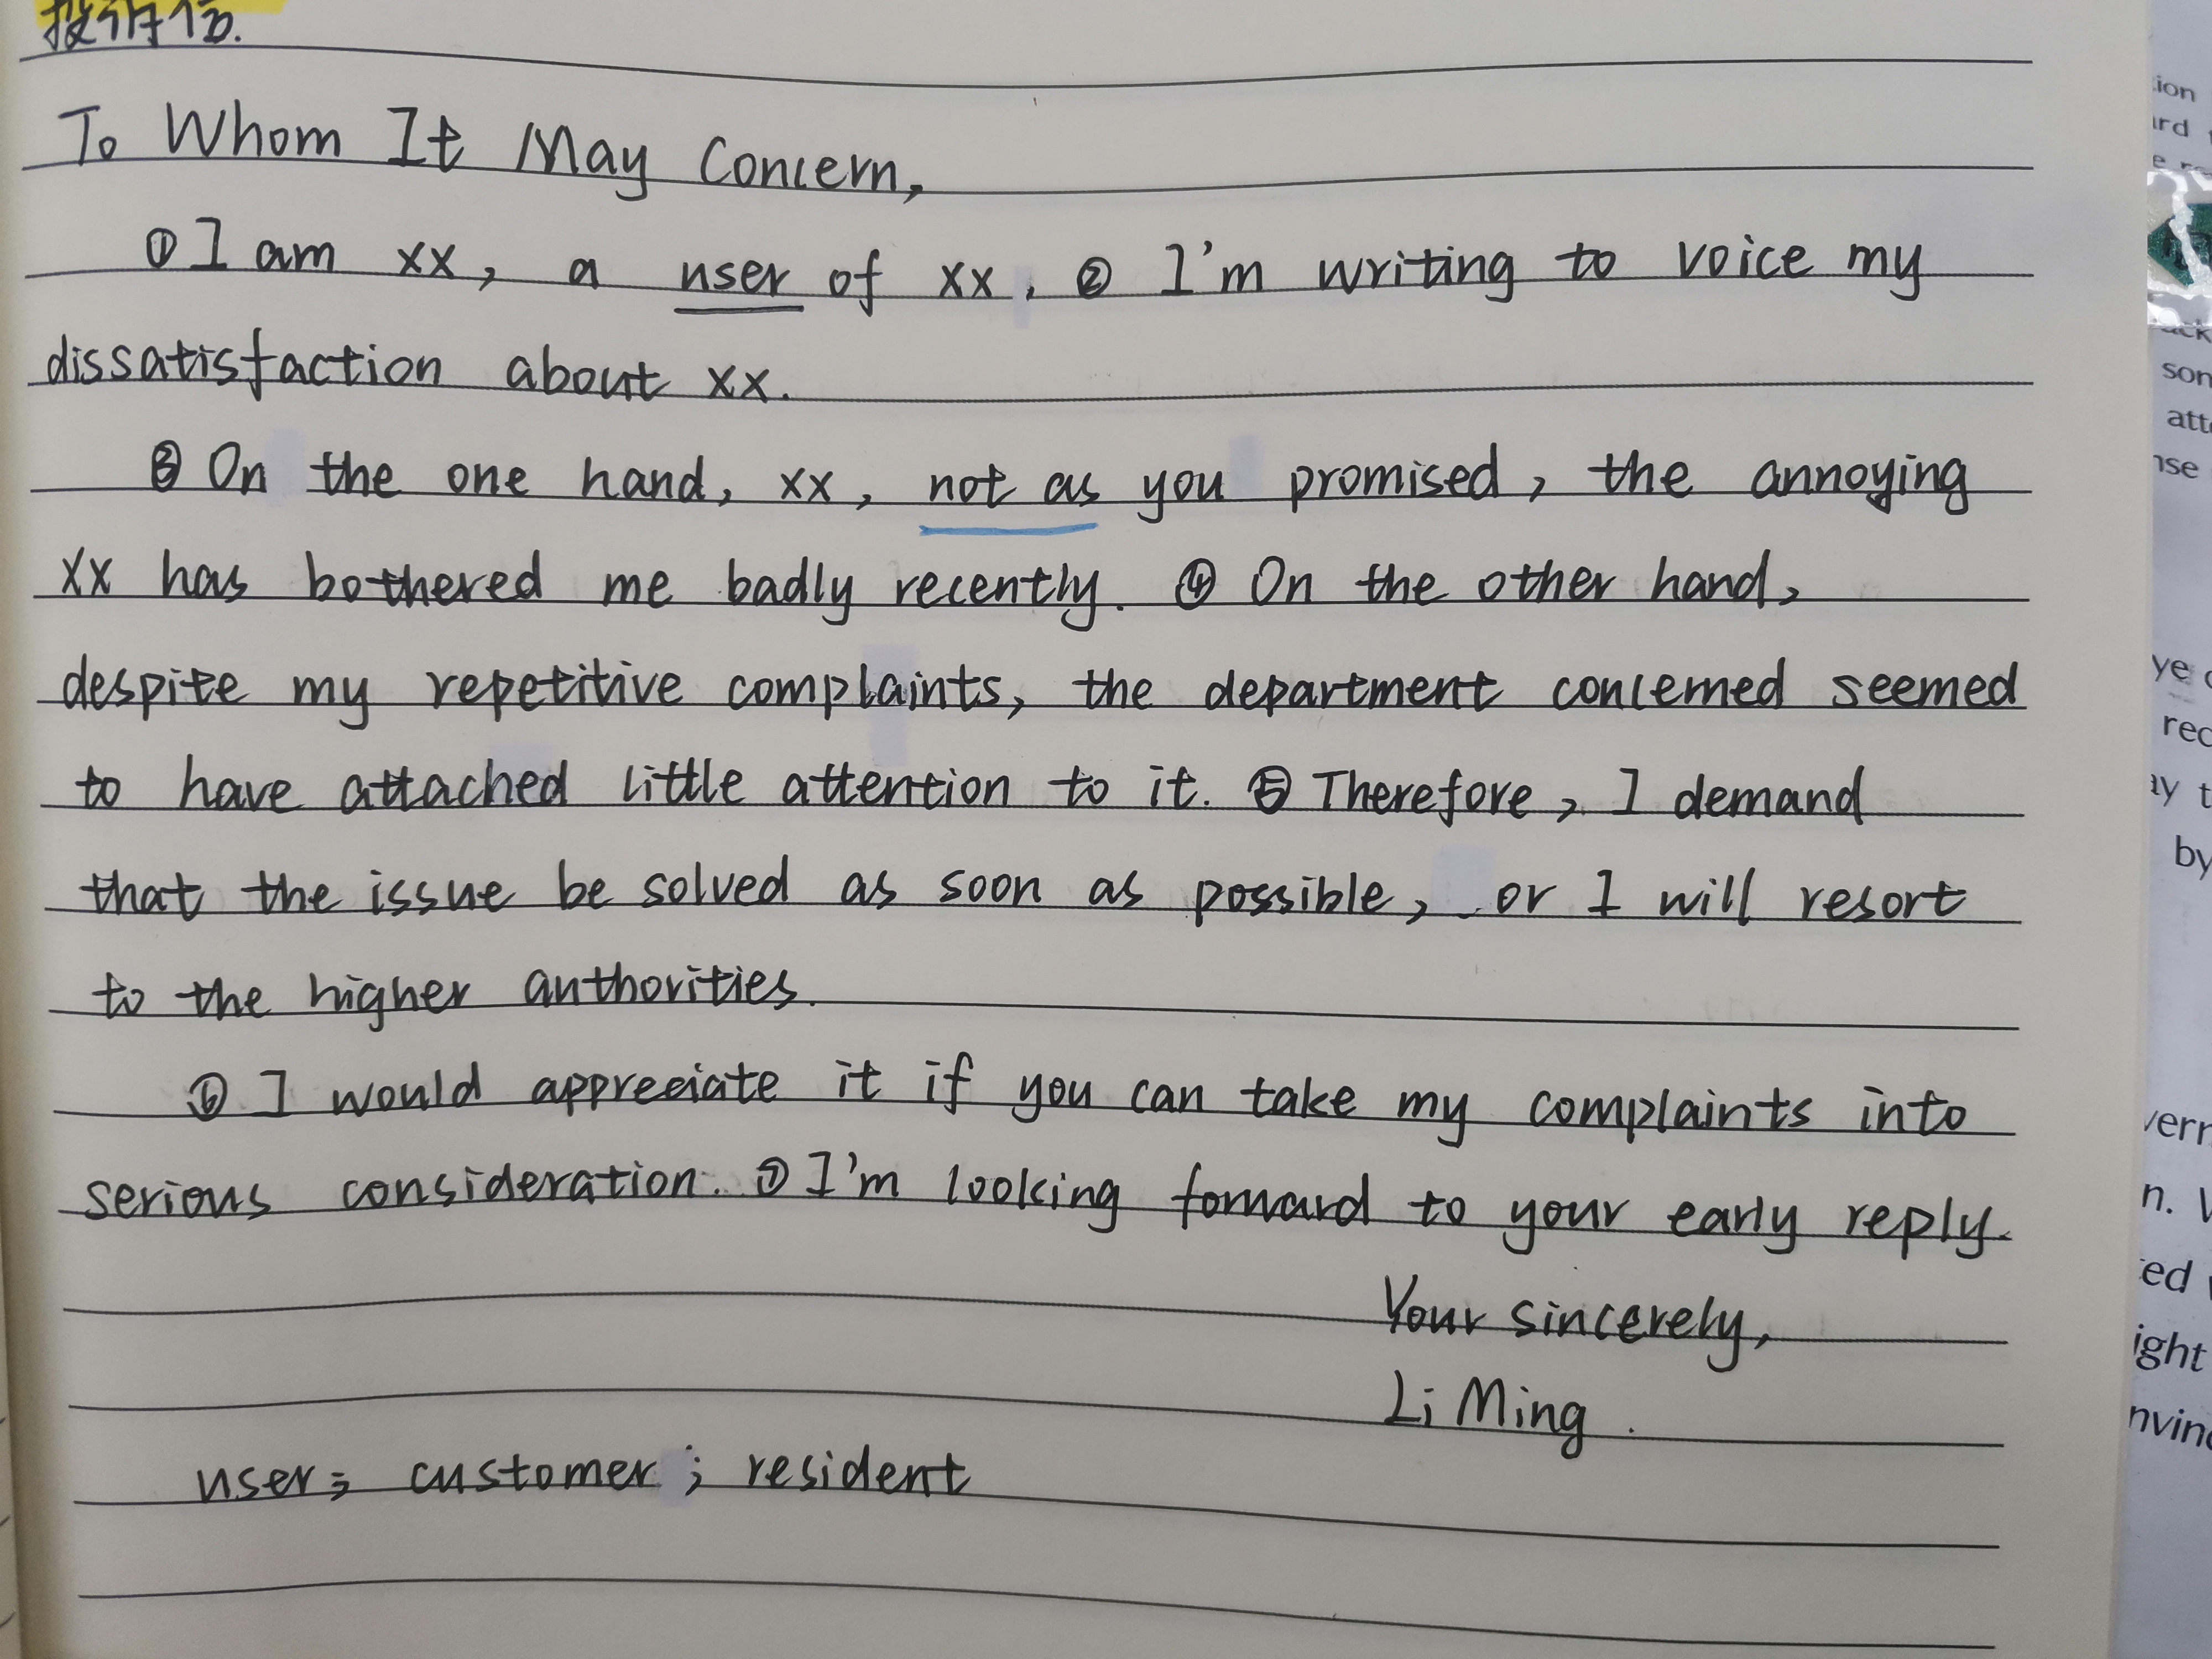 投诉信.
To Whom It May Concern,
① I am xx, a user of xx. ② I'm writing to voice my
dissatisfaction about xx.
③ On the one hand, xx, not as you promised, the annoying
xx has bothered me badly recently. ④ On the other hand,
despite my repetitive complaints, the department concerned seemed
to have attached little attention to it. ⑤ Therefore, I demand
that the issue be solved as soon as possible, or I will resort
to the higher authorities.
⑥ I would appreciate it if you can take my complaints into
serious consideration. ⑦ I'm looking forward to your early reply.
Your sincerely,
Li Ming.
user = customer ; resident